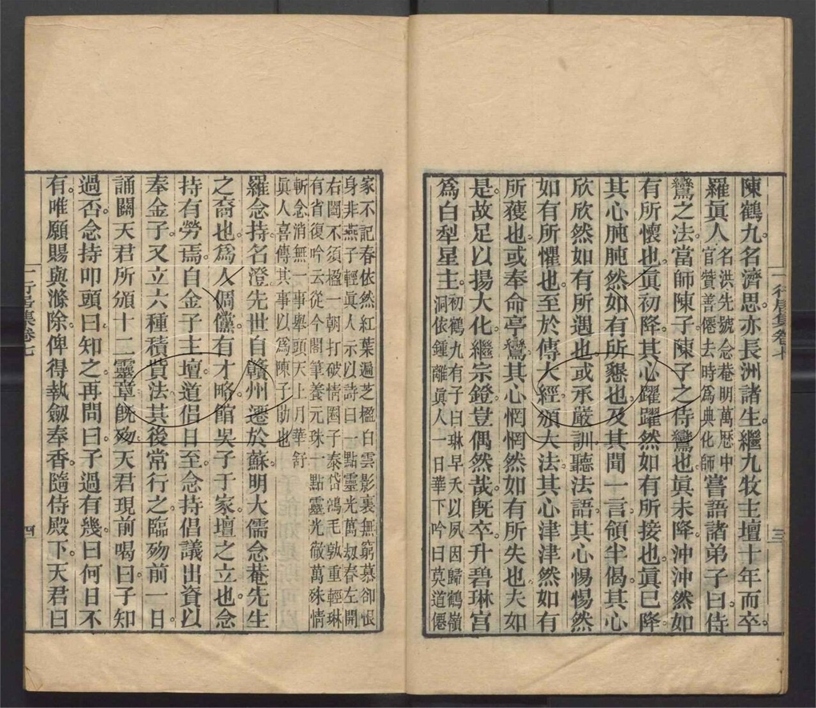 陳鶴九名濟思亦長洲諸生繼九牧主壇十年而卒
羅眞人名洪先號念菴明萬厯中官贊善僊去時爲典化師嘗語諸弟子曰侍
鸞之法當師陳子陳子之侍鸞也眞未降沖沖然如
有所懷也眞初降其心躍躍然如有所接也眞已降
其心肫肫然如有所懇也及其聞一言領半偈其心
欣欣然如有所遇也或承嚴訓聽法語其心惕惕然
如有所懼也至於傳大經頒大法其心津津然如有
所獲也或奉命亭鸞其心惘惘然如有所失也夫如
是故足以揚大化繼宗鐙豈偶然哉旣卒升碧琳宮
爲白犁星主初鶴九有子曰琳早夭以夙因歸鶴嶺洞依鍾離眞人一日華下吟曰莫道僊
一行居集卷七
三
家不記春依然紅葉遍芝楹白雲影裏無窮慕卻恨
身非燕子輕眞人示以詩曰一點靈光萬刼春左開
右闔不須楹一朝打破情圈子泰岱鴻毛孰重輕琳
有省復吟云從今閣筆養元珠一點靈光敵萬殊情
斬念消無一事舉頭天上月華舒
眞人喜傳其事以爲陳子助也
羅念持名澄先世自贛州遷於蘇明大儒念菴先生
之裔也爲人倜儻有才略館吳子于家壇之立也念
持有勞焉自金子主壇道侶日至念持倡議出資以
奉金子又立六種積貲法其後常行之臨歿前一日
誦關天君所頒十二靈章旣歿天君現前喝曰子知
過否念持叩頭曰知之再問曰子過有幾曰何日不
有唯願賜與滌除俾得執劒奉香隨侍殿下天君曰
一行居集卷七
四